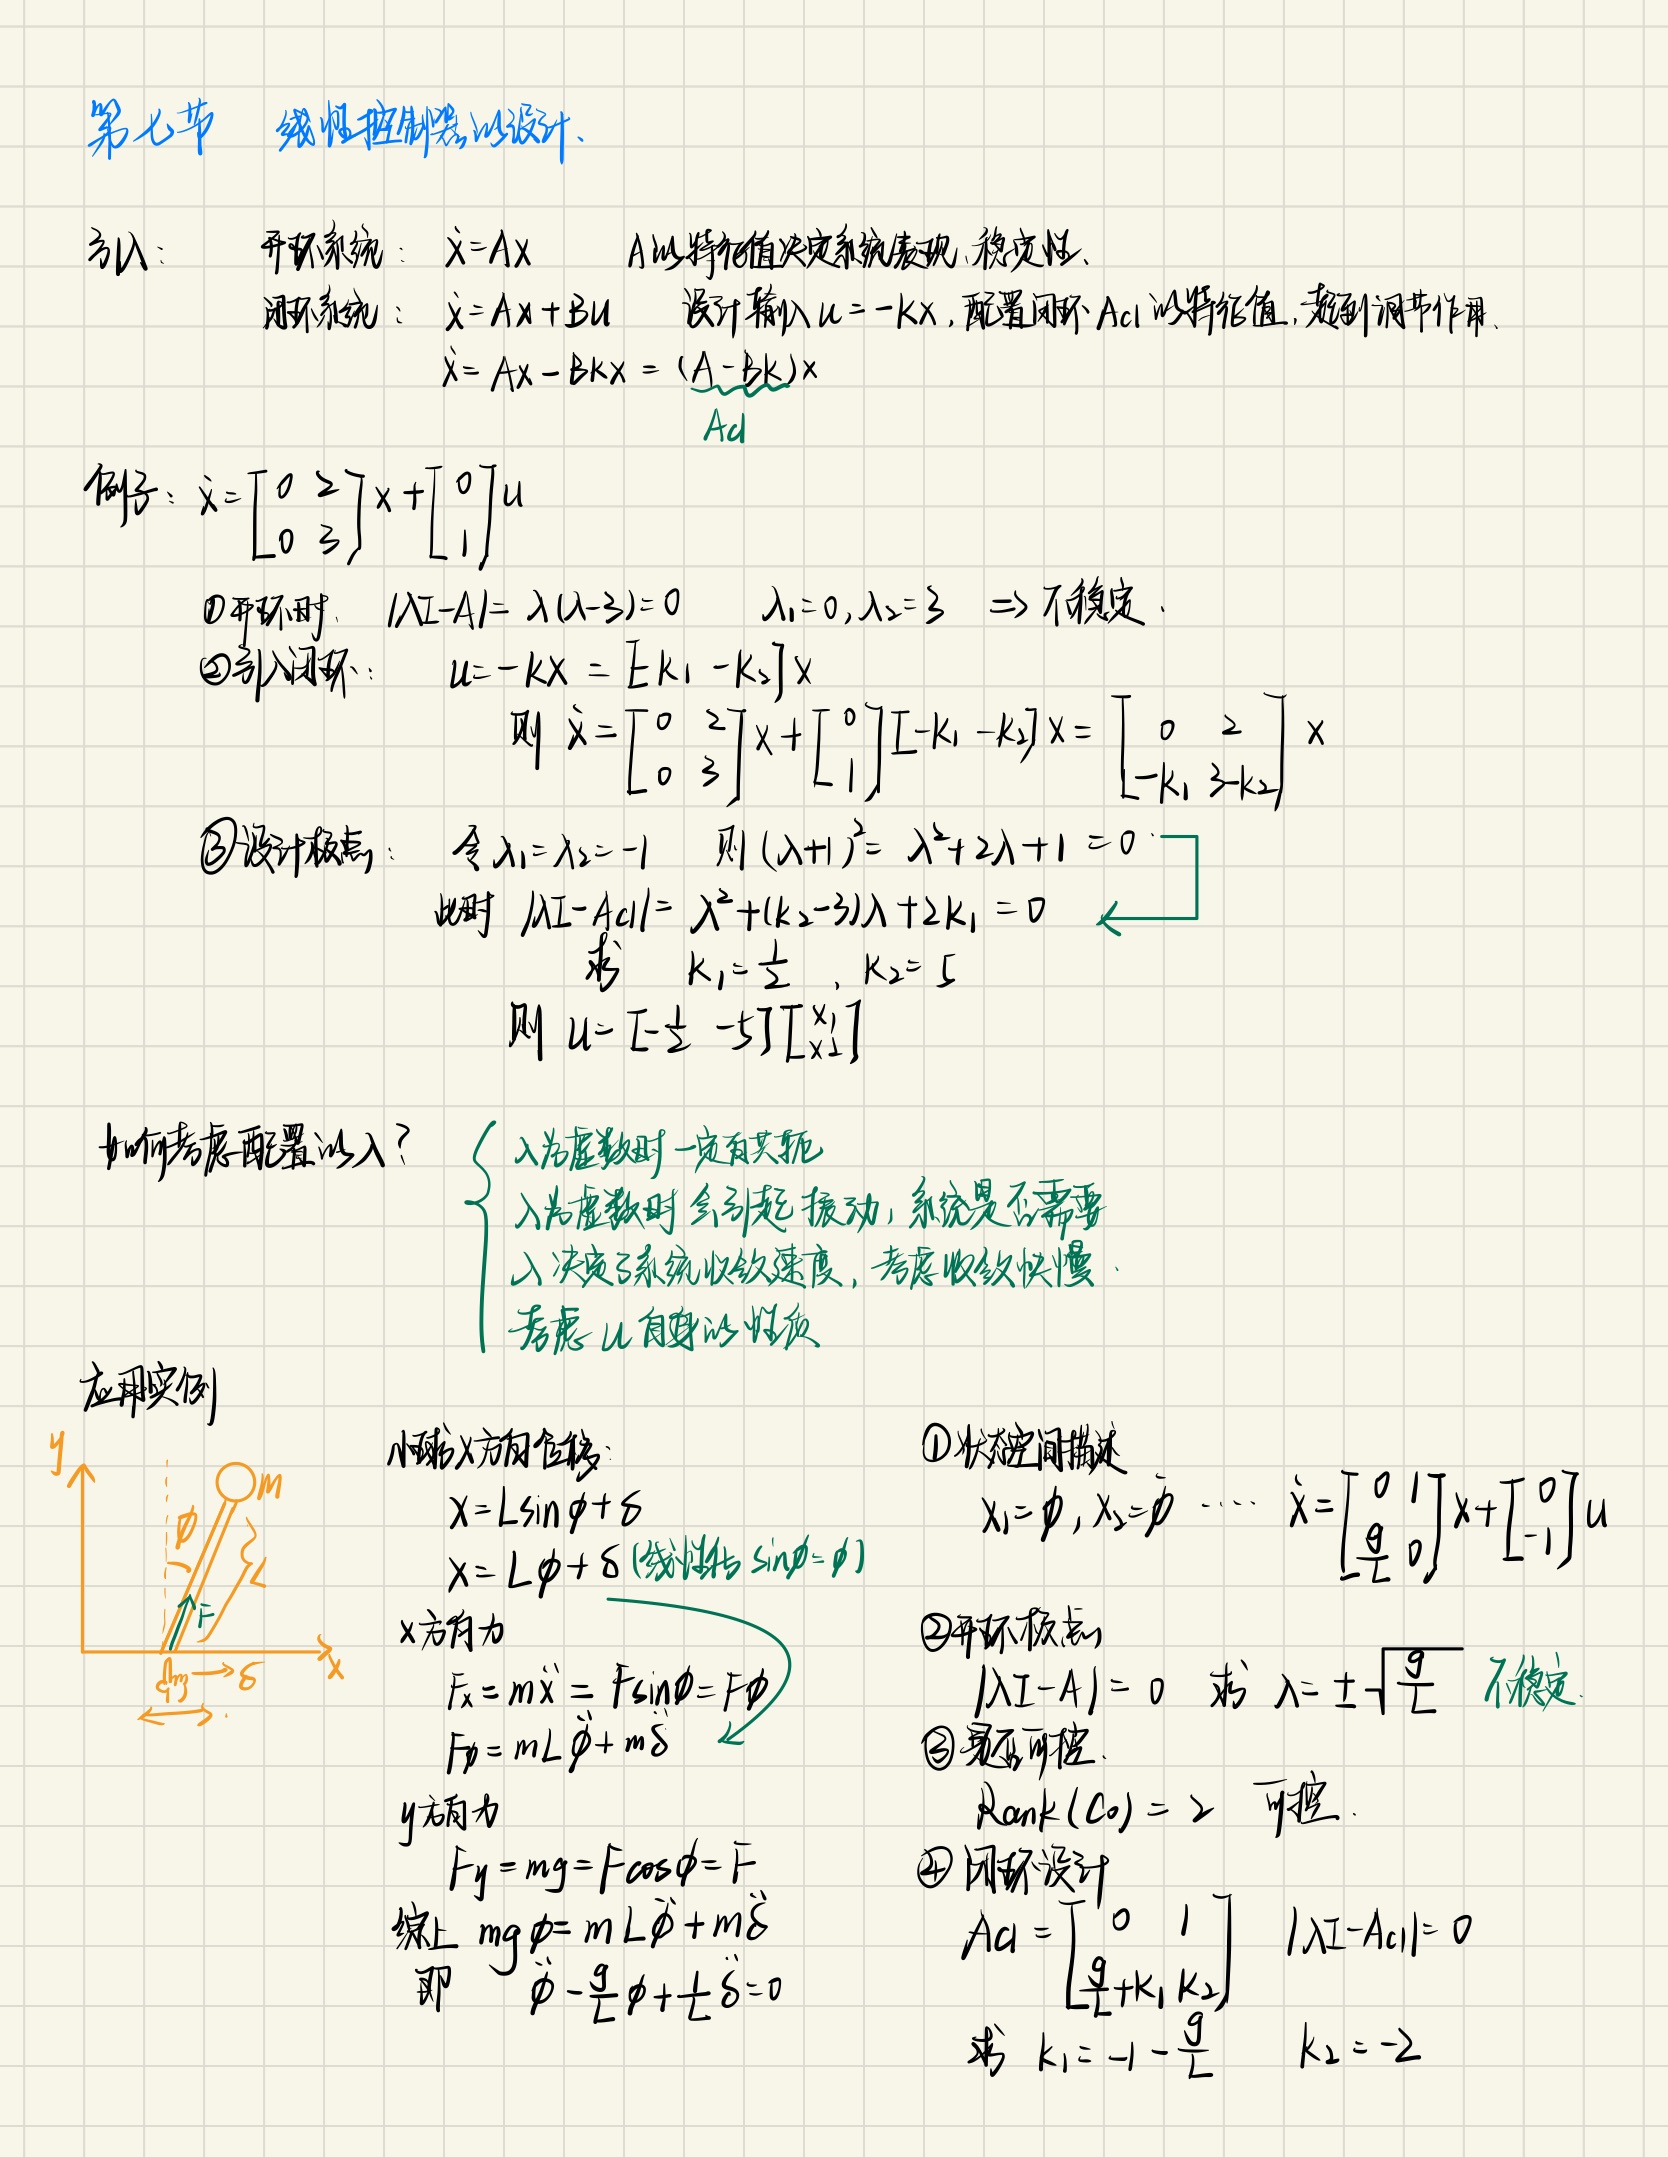 第七节 线性控制器的设计、
引入： 开环系统： ẋ=Ax A的特征值决定系统表现、稳定性、
闭环系统： ẋ=Ax+Bu 设计输入u=-kx，配置闭环Acl的特征值，起到调节作用、
ẋ=Ax-Bkx=(A-Bk)x
Acl
例子：ẋ=[0 2; 0 3]x+[0; 1]u
①开环时. |λI-A|=λ(λ-3)=0 λ₁=0,λ₂=3 => 不稳定.
②引入闭环： u=-kx=[-k₁ -k₂]x
则 ẋ=[0 2; 0 3]x+[0; 1][-k₁ -k₂]x=[0 2; -k₁ 3-k₂]x
③设计极点： 令λ₁=λ₂=-1 则(λ+1)²=λ²+2λ+1=0
此时 |λI-Acl|=λ²+(k₂-3)λ+2k₁=0
求 k₁=1/2 , k₂=5
则 u=[-1/2 -5][x₁; x₂]
如何考虑配置的λ？
λ为虚数时一定有共轭
λ为虚数时会引起振动，系统是否需要
λ决定了系统收敛速度，考虑收敛快慢.
考虑u自身的性质
应用实例
y
m
φ
L
F
x
δ
小球x方向位移：
x=Lsinφ+δ
x=Lφ+δ(线性化 sinφ=φ)
x方向力
Fx=mẍ=Fsinφ=Fφ
Fφ=mLφ̈+mδ̈
y方向力
Fy=mg=Fcosφ=F
综上 mgφ=mLφ̈+mδ̈
即 φ̈-g/L φ+1/L δ̈=0
①状态空间描述
x₁=φ,x₂=φ̇ ···· ẋ=[0 1; g/L 0]x+[0; -1]u
②开环极点
|λI-A|=0 求 λ=±√(g/L) 不稳定.
③是否可控.
Rank(Co)=2 可控.
④闭环设计
Acl=[0 1; g/L+k₁ k₂] |λI-Acl|=0
求 k₁=-1-g/L k₂=-2